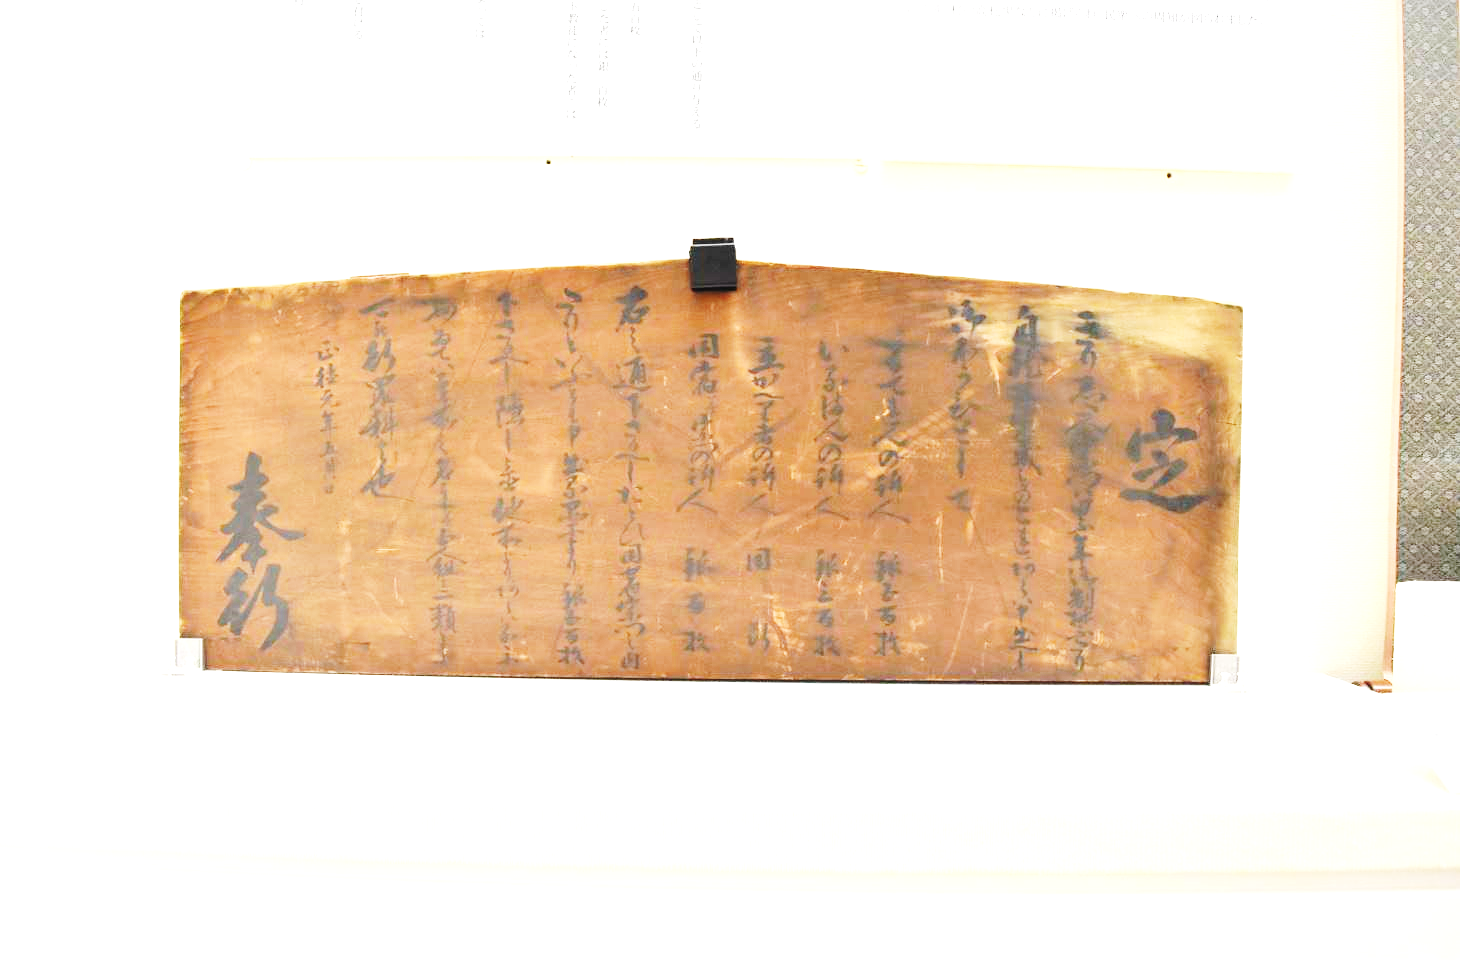 定
きりしたん宗門は累年御制禁たり
自然不審成もの有之は申出へし
御ほうひとして
はてれんの訴人 銀五百枚
いるまんの訴人 銀三百枚
立かへり者の訴人 同断
同宿并宗門の訴人 銀百枚
右之通下さるへしたとひ同宿宗門之内
たりといふとも申出る品により銀五百枚
下さるへし隠し置他所よりあらはるゝに
おゐては其所之名主并五人組迄一類ともに
可被行罪科者也
正徳元年五月日
奉行